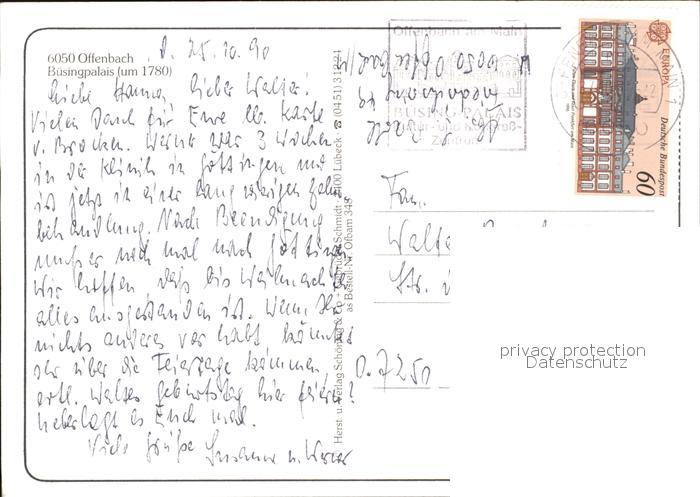 6050 Offenbach
Büsingpalais (um 1780)
d. 25.10.90
Liebe Hanna, lieber Walter!
Vielen Dank für Eure lb. Karte
v. Brocken. Werner war 3 Wochen
in der Klinik in Göttingen und
ist jetzt in einer langwierigen Zahn
behandlung. Nach Beendigung
muß er noch mal nach Göttingen
Wir hoffen daß bis Weihnachten
alles ausgestanden ist. Wenn Ihr
nichts anderes vor habt könntet
Ihr über die Feiertage kommen
evtl. Walters Geburtstag hier feiern?
Überlegt es Euch mal.
Viele Grüße
Susanne u. Werner
Herst. u. Verlag Schöning & Co + Gebrüder Schmidt · 2400 Lübeck · ☎ (04 51) 3
as Bestell-Nr. Ofbam 345
6050 Offenbach
Offenbach am Main
BÜSING-PALAIS
Kultur- und Kongreß-
Zentrum
EUROPA
Deutsche Bundespost
60
Fam.
Walte
Str.
D. 7250
privacy protection
Datenschutz